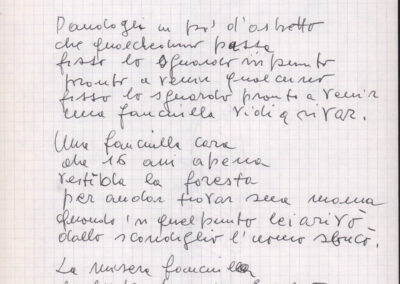 Dandogli un po' d'aspetto
che qualcheduno passa
fisso lo sguardo in punto
pronto a venir qualcuno
fisso lo sguardo pronto a venir
una fanciulla vidi arrivar.
Una fanciulla cara
da 16 ani apena
vestibla la foresta
per andar trovar sua nonna
quando 'n quel punto lei arivò
dallo scondiglio l'uomo sbucò.
La misera fanciulla